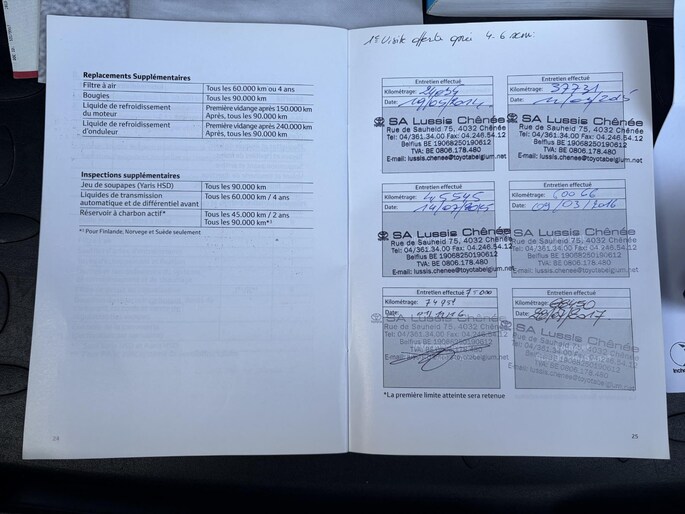 Replacements Supplémentaires
Filtre à air Tous les 60.000 km ou 4 ans
Bougies Tous les 90.000 km
Liquide de refroidissement du moteur Première vidange après 150.000 km
Après, tous les 90.000 km.
Liquide de refroidissement d'onduleur Première vidange après 240.000 km
Après, tous les 90.000 km.
Inspections supplémentaires
Jeu de soupapes (Yaris HSD) Tous les 90.000 km
Liquides de transmission automatique et de différentiel avant Tous les 60.000 km / 4 ans
Réservoir à charbon actif* Tous les 45.000 km / 2 ans
Tous les 90.000 km*¹
*¹ Pour Finlande, Norvege et Suède seulement
24
1e Visite offerte après 4-6
Entretien effectué
Kilométrage:
Date: 19/05/2014
SA Lussis Chênée
Rue de Sauheid 75, 4032 Chênée
Tel: 04/361.34.00 Fax: 04.246.54.12
Belfius BE 19068250190612
TVA: BE 0806.178.480
E-mail: lussis.chenee@toyotabelgium.net
Entretien effectué
Kilométrage: 37731
Date:
SA Lussis Chênée
Rue de Sauheid 75, 4032 Chênée
Tel: 04/361.34.00 Fax: 04.246.54.12
Belfius BE 19068250190612
TVA: BE 0806.178.480
E-mail: lussis.chenee@toyotabelgium.net
Entretien effectué
Kilométrage: 45545
Date: 14/07/2015
SA Lussis Chênée
Rue de Sauheid 75, 4032 Chênée
Tel: 04/361.34.00 Fax: 04.246.54.12
Belfius BE 19068250190612
TVA: BE 0806.178.480
E-mail: lussis.chenee@toyotabelgium.net
Entretien effectué
Kilométrage: 60066
Date: 09/03/2016
SA Lussis Chênée
Rue de Sauheid 75, 4032 Chênée
Tel: 04/361.34.00 Fax: 04.246.54.12
Belfius BE 19068250190612
TVA: BE 0806.178.480
E-mail: lussis.chenee@toyotabelgium.net
Entretien effectué 75000
Kilométrage: 74951
Date:
SA Lussis Chênée
Rue de Sauheid 75, 4032 Chênée
Tel: 04/361.34.00 Fax: 04.246.54.12
Belfius BE 19068250190612
TVA: BE 0806.178.480
E-mail: lussis.chenee@toyotabelgium.net
Entretien effectué
Kilométrage:
Date:
SA Lussis Chênée
Rue de Sauheid 75, 4032 Chênée
Tel: 04/361.34.00 Fax: 04.246.54.12
Belfius BE 19068250190612
TVA: BE 0806.178.480
E-mail: lussis.chenee@toyotabelgium.net
*La première limite atteinte sera retenue
25